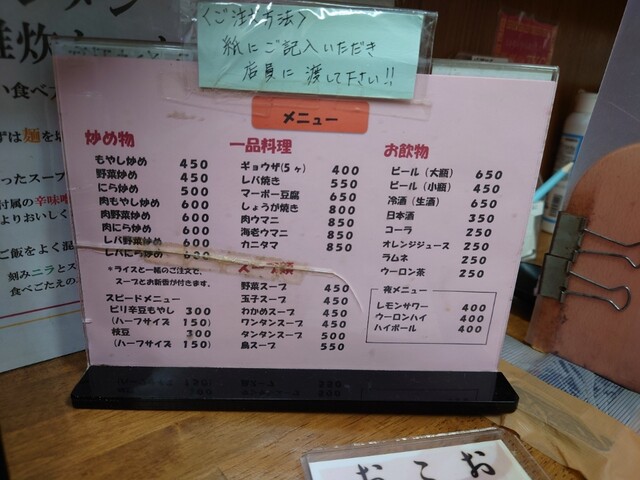 〈ご注文方法〉
紙にご記入いただき
店員に渡して下さい!!
メニュー
炒め物
もやし炒め 450
野菜炒め 450
にら炒め 500
肉もやし炒め 600
肉野菜炒め 600
肉にら炒め 600
レバ野菜炒め 600
レバにら炒め 600
*ライスと一緒のご注文で、
スープとお新香が付きます。
スピードメニュー
ピリ辛豆もやし 300
(ハーフサイズ 150)
枝豆 300
(ハーフサイズ 150)
一品料理
ギョウザ(5ヶ) 400
レバ焼き 550
マーボー豆腐 650
しょうが焼き 800
肉ウマニ 850
海老ウマニ 850
カニタマ 850
スープ類
野菜スープ 450
玉子スープ 450
わかめスープ 450
ワンタンスープ 450
タンタンスープ 500
鳥スープ 550
お飲物
ビール(大瓶) 650
ビール(小瓶) 450
冷酒(生酒) 650
日本酒 350
コーラ 250
オレンジジュース 250
ラムネ 250
ウーロン茶 250
夜メニュー
レモンサワー 400
ウーロンハイ 400
ハイボール 400